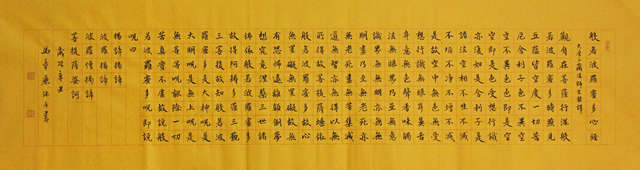 般若波羅蜜多心經
大唐三藏法師玄奘譯
觀自在菩薩行深般
若波羅蜜多時照見
五蘊皆空度一切苦
厄舍利子色不異空
空不異色色即是空
空即是色受想行識
亦復如是舍利子是
諸法空相不生不滅
不垢不淨不增不減
是故空中無色無受
想行識無眼耳鼻舌
身意無色聲香味觸
法無眼界乃至無意
識界無無明亦無無
明盡乃至無老死亦
無老死盡無苦集滅
道無智亦無得以無
所得故菩提薩埵依
般若波羅蜜多故心
無罣礙無罣礙故無
有恐怖遠離顛倒夢
想究竟涅槃三世諸
佛依般若波羅蜜多
故得阿耨多羅三藐
三菩提故知般若波
羅蜜多是大神咒是
大明咒是無上咒是
無等等咒能除一切
苦真實不虛故說般
若波羅蜜多咒即說
咒曰
揭諦揭諦
波羅揭諦
波羅僧揭諦
菩提薩婆訶
歲次